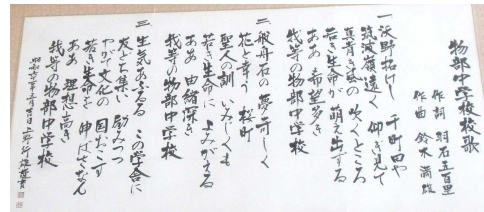 物部中学校校歌
作詞 明石五百里
作曲 鈴木満路
一、沃野拓けし 千町田や
筑波嶺遠く 仰ぎ見て
真青き風の 吹くところ
若き生命が 萌え出ずる
ああ 希望多き
我等の物部中学校
二、般舟石の 夢可しく
花と幸う 桜町
聖人の訓 いみじくも
若き生命に よみがえる
ああ 由緒深き
我等の物部中学校
三、生気あふるる この学舎に
友どち集い 励みつつ
やがて文化の 国おこす
若き生命を 伸ばさなん
ああ 理想高き
我等の物部中学校
昭和六一年三月吉日